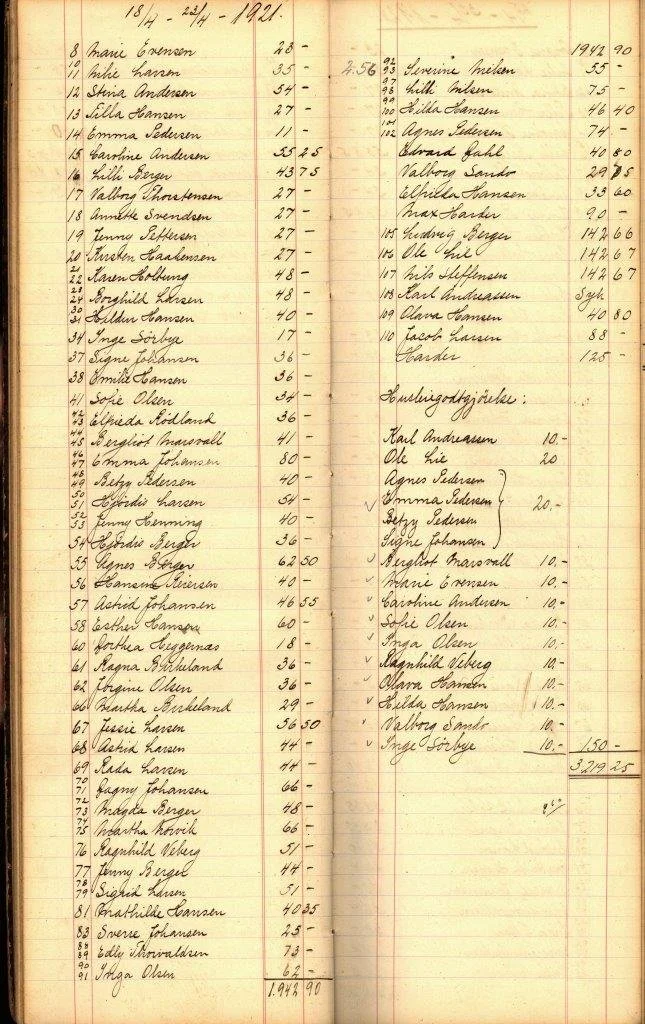 18/4 - 23/4 - 1921.
8 Marie Evensen 28 -
10 11 Nilie Larsen 35 -
12 Stina Andersen 54 -
13 Silla Hansen 27 -
14 Emma Pedersen 11 -
15 Caroline Andersen 55 25
16 Lilli Berger 43 75
17 Valborg Thorstensen 27 -
18 Annette Svendsen 27 -
19 Jenny Pettersen 27 -
20 Kirsten Haakensen 27 -
21 22 Karen Holbung 48 -
23 24 Borghild Larsen 48 -
30 31 Hildur Hansen 40 -
34 Inge Sörbye 17 -
37 Signe Johansen 36 -
38 Emilie Hansen 36 -
41 Sofie Olsen 34 -
42 43 Elfrieda Rödland 36 -
44 45 Bergliot Marsvall 41 -
46 47 Emma Johansen 80 -
48 49 Betzy Pedersen 40 -
50 51 Hjördis Larsen 54 -
52 53 Jenny Henning 40 -
54 Hjördis Berger 36 -
55 Agnes Berger 62 50
56 Hansine Reiersen 40 -
57 Astrid Johansen 46 55
58 Esther Hansen 60 -
60 Dorthea Heggernæs 18 -
61 Ragna Birkeland 36 -
62 Jörgine Olsen 36 -
66 Martha Birkeland 29 -
67 Jessie Larsen 56 50
68 Astrid Larsen 44 -
69 Rada Larsen 44 -
70 71 Dagny Johansen 66 -
72 73 Magda Berger 48 -
74 75 Martha Norvik 66 -
76 Ragnhild Veberg 51 -
77 Jenny Berger 44 -
78 79 Sigrid Larsen 51 -
81 Mathilde Hansen 40 35
83 Sverre Johansen 25 -
88 89 Edly Thorvaldsen 73 -
90 91 Inga Olsen 62 -
1.942 90
1942 90
2.56 92 93 Severine Nielsen 55 -
97 98 Lilli Nilsen 75 -
99 100 Hilda Hansen 46 40
101 102 Agnes Pedersen 74 -
Edvard Dahl 40 80
Valborg Sandø 29 75
Elfrieda Hansen 33 60
Max Harder 90 -
105 Ludvig Berger 142 66
106 Ole Lie 142 67
107 Nils Steffensen 142 67
108 Karl Andreassen Syk
109 Olava Hansen 40 80
110 Jacob Larsen 88 -
Harder 125 -
Husleiegodtgjörelse:
Karl Andreassen 10.-
Ole Lie 20
Agnes Pedersen
Emma Pedersen 20.-
Betzy Pedersen
Signe Johansen
Bergliot Marsvall 10.-
Marie Evensen 10.-
Caroline Andersen 10.-
Sofie Olsen 10.-
Inga Olsen 10.-
Ragnhild Veberg 10.-
Olava Hansen 10.-
Hilda Hansen 10.-
Valborg Sandø 10.-
Inge Sörbye 10.- 150 -
3219 25